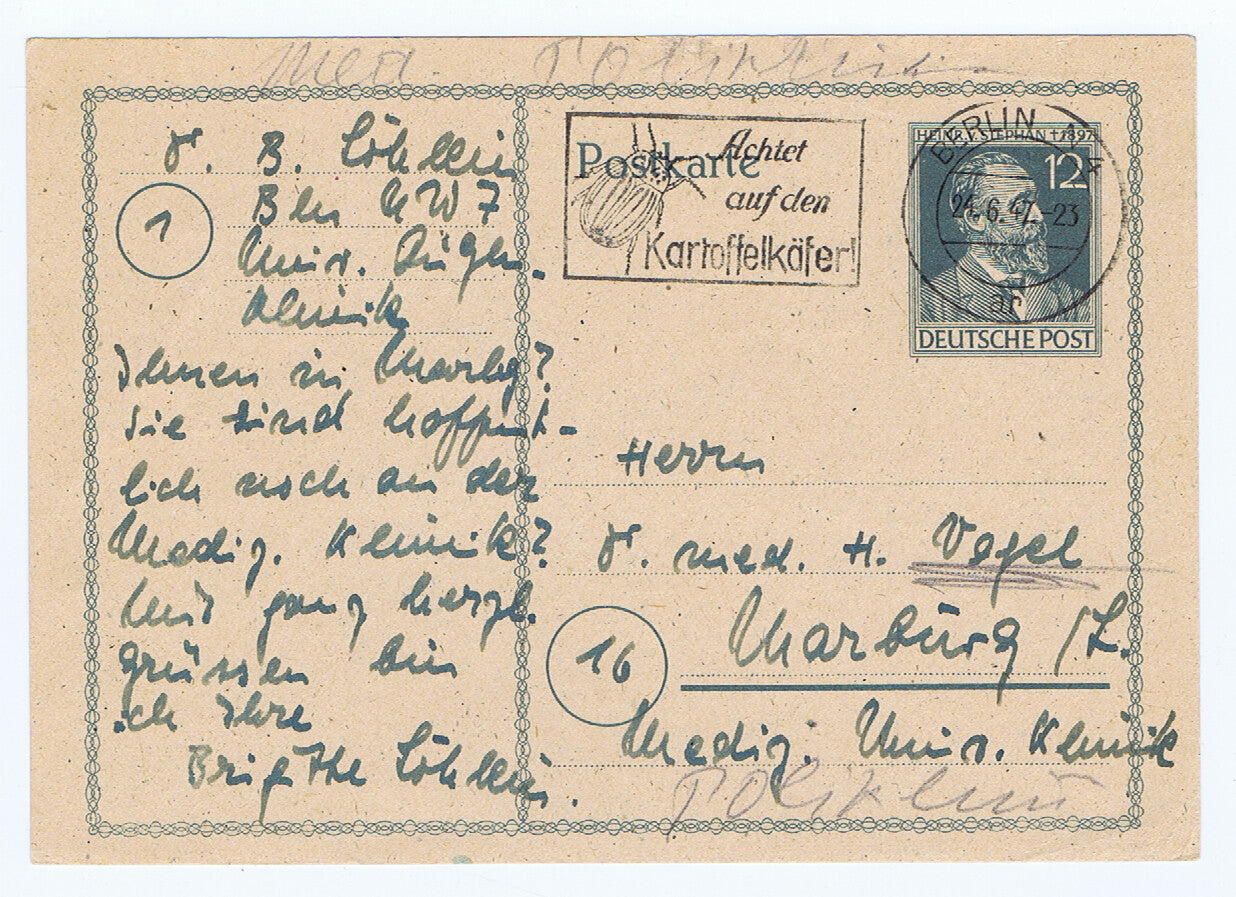 Med. Poliklinik
Dr. B. Löhlein
1
Bln NW 7
Univ. Augen-
klinik
Ihnen in Marbg?
Sie sind hoffent-
lich noch an der
Mediz. Klinik?
Mit ganz herzl.
grüssen bin
ich Ihre
Brigitte Löhlein.
Postkarte
Achtet
auf den
Kartoffelkäfer!
HEINR. v. STEPHAN † 1897
12
DEUTSCHE POST
BERLIN
24.6.47.-23
ar
Herrn
Dr. med. H. Vogel
16
Marburg /L.
Mediz. Univ. Klinik
Poliklinik